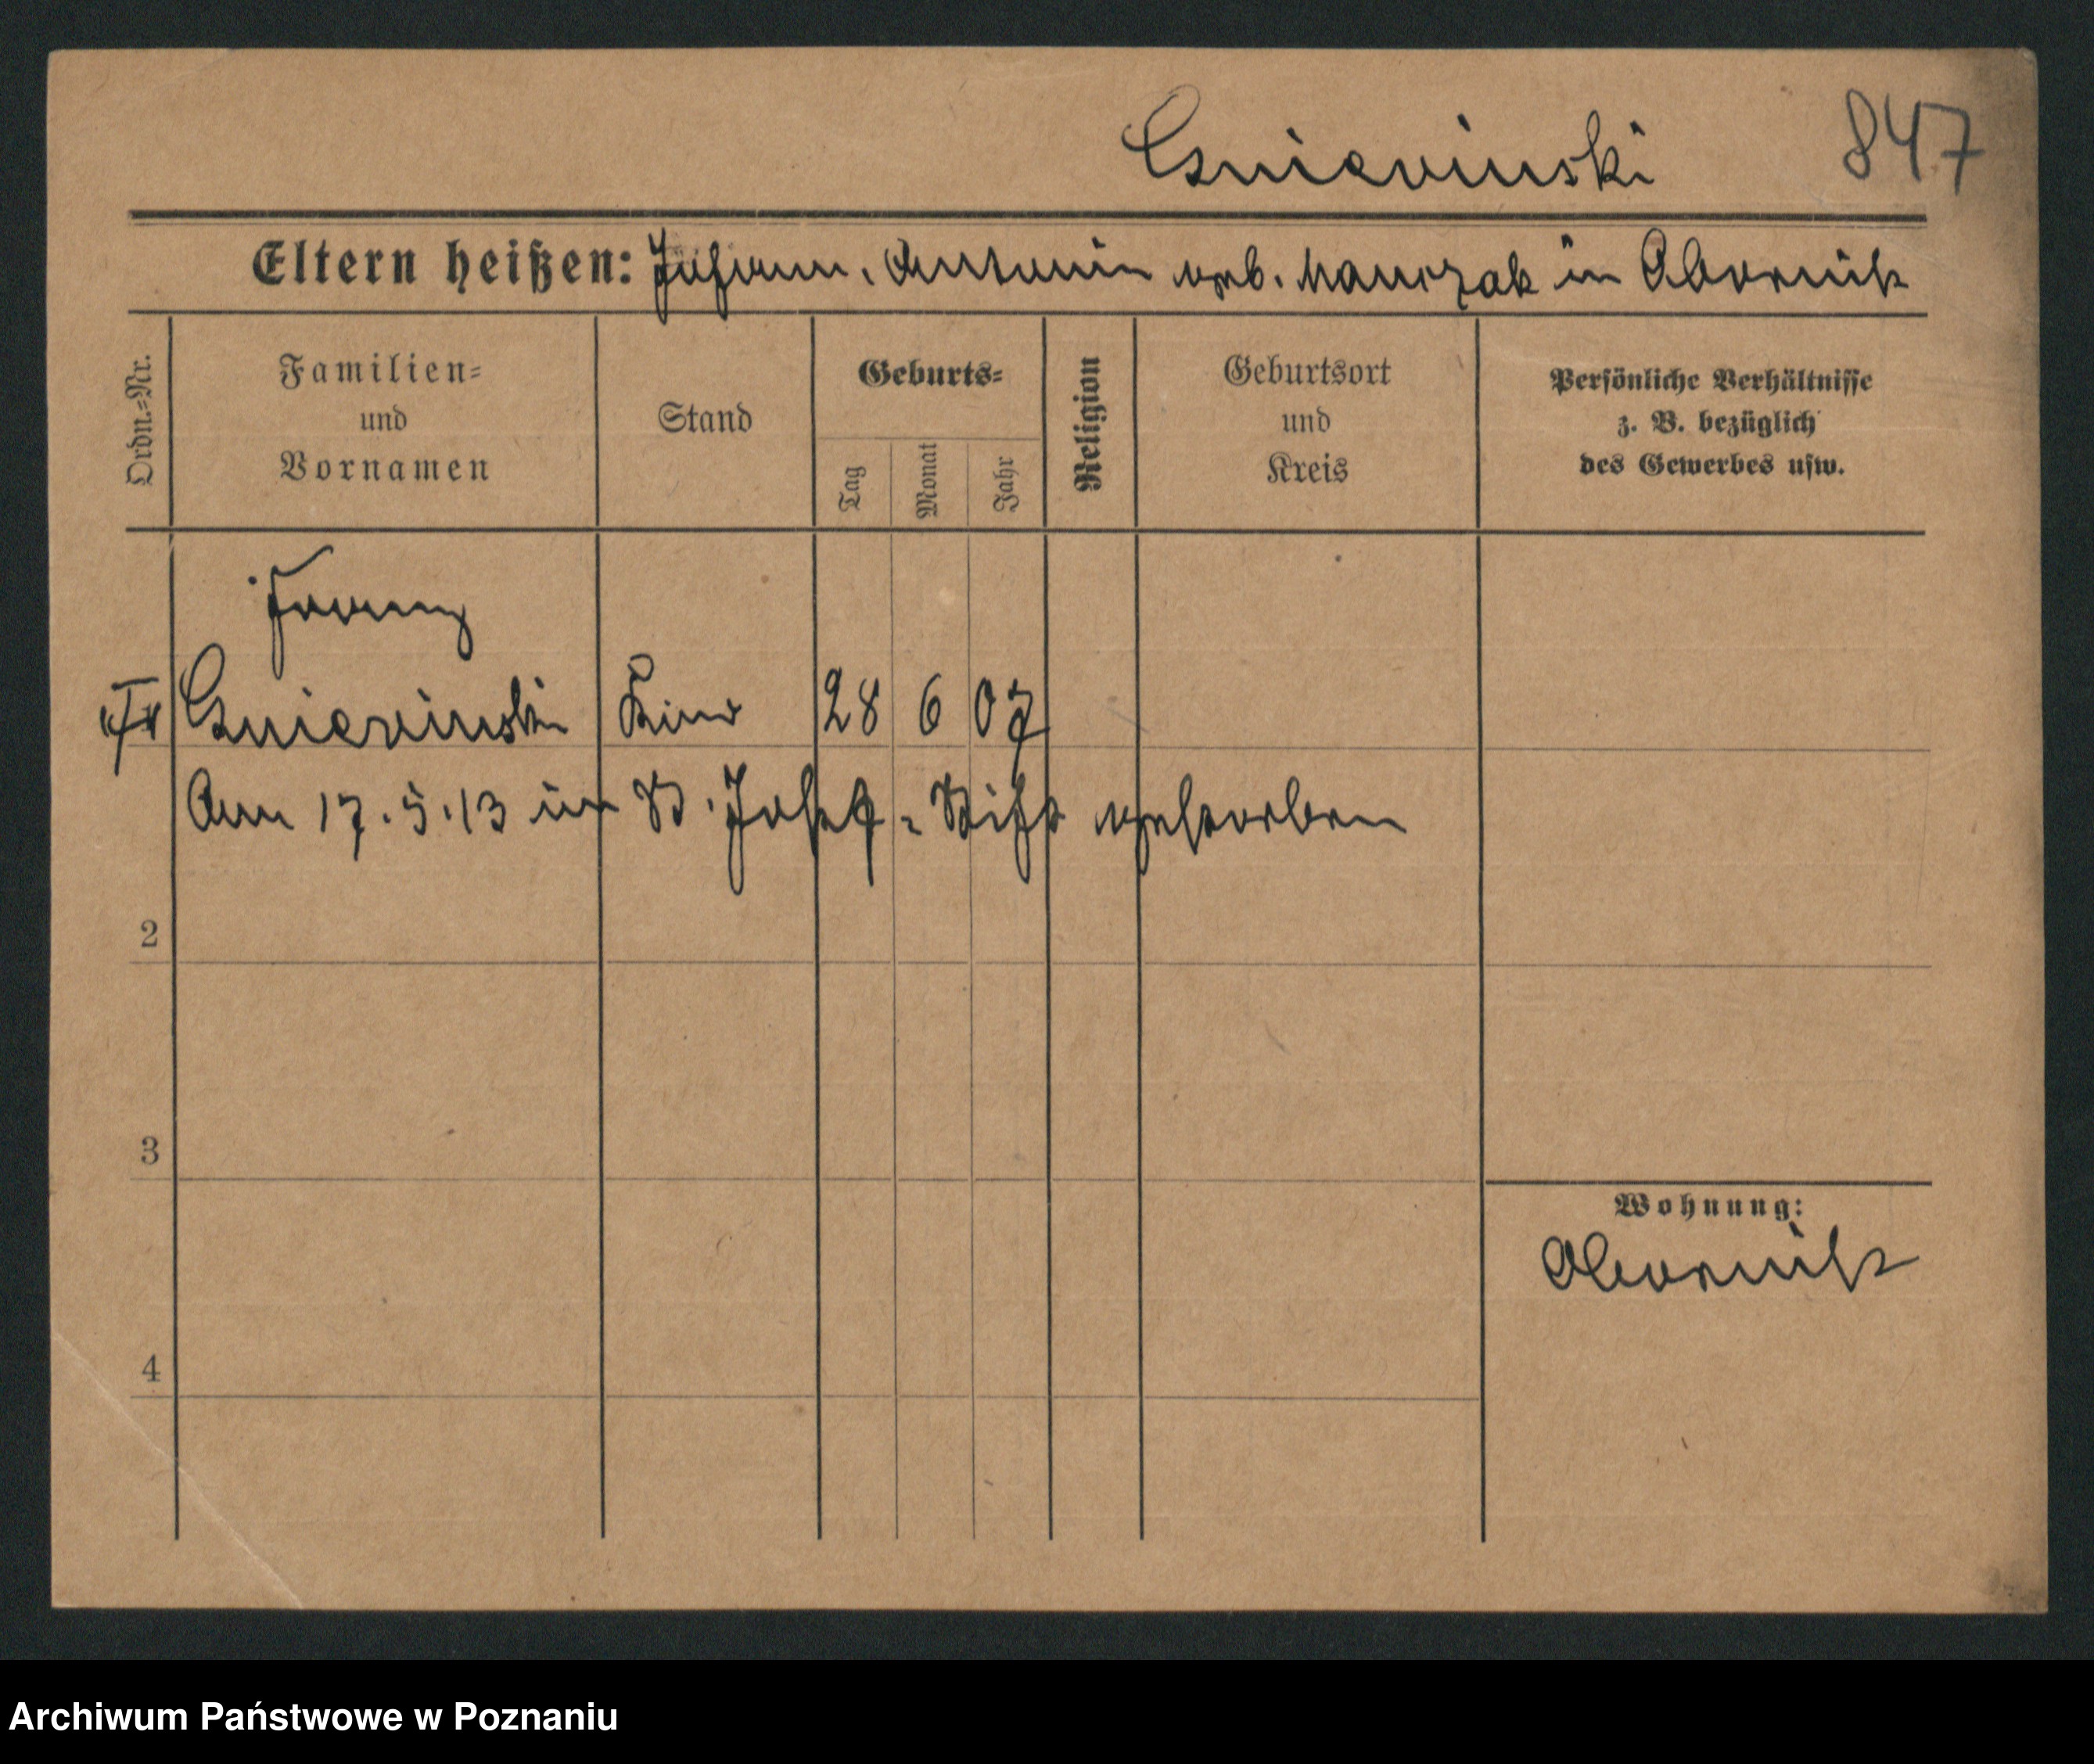 Gnievinski 847
Eltern heißen: Johann, Antonin geb. Manczak in Obornik
Ordn.=Nr.
Familien=
und
Vornamen
Stand
Geburts=
Tag
Monat
Jahr
Religion
Geburtsort
und
Kreis
Persönliche Verhältnisse
z. B. bezüglich
des Gewerbes usw.
Franz
Gnievinski Kind 28 6 07
Am 17.5.13 im St. Josef=Stift gestorben
2
3
Wohnung:
Obornik
4
Archiwum Państwowe w Poznaniu